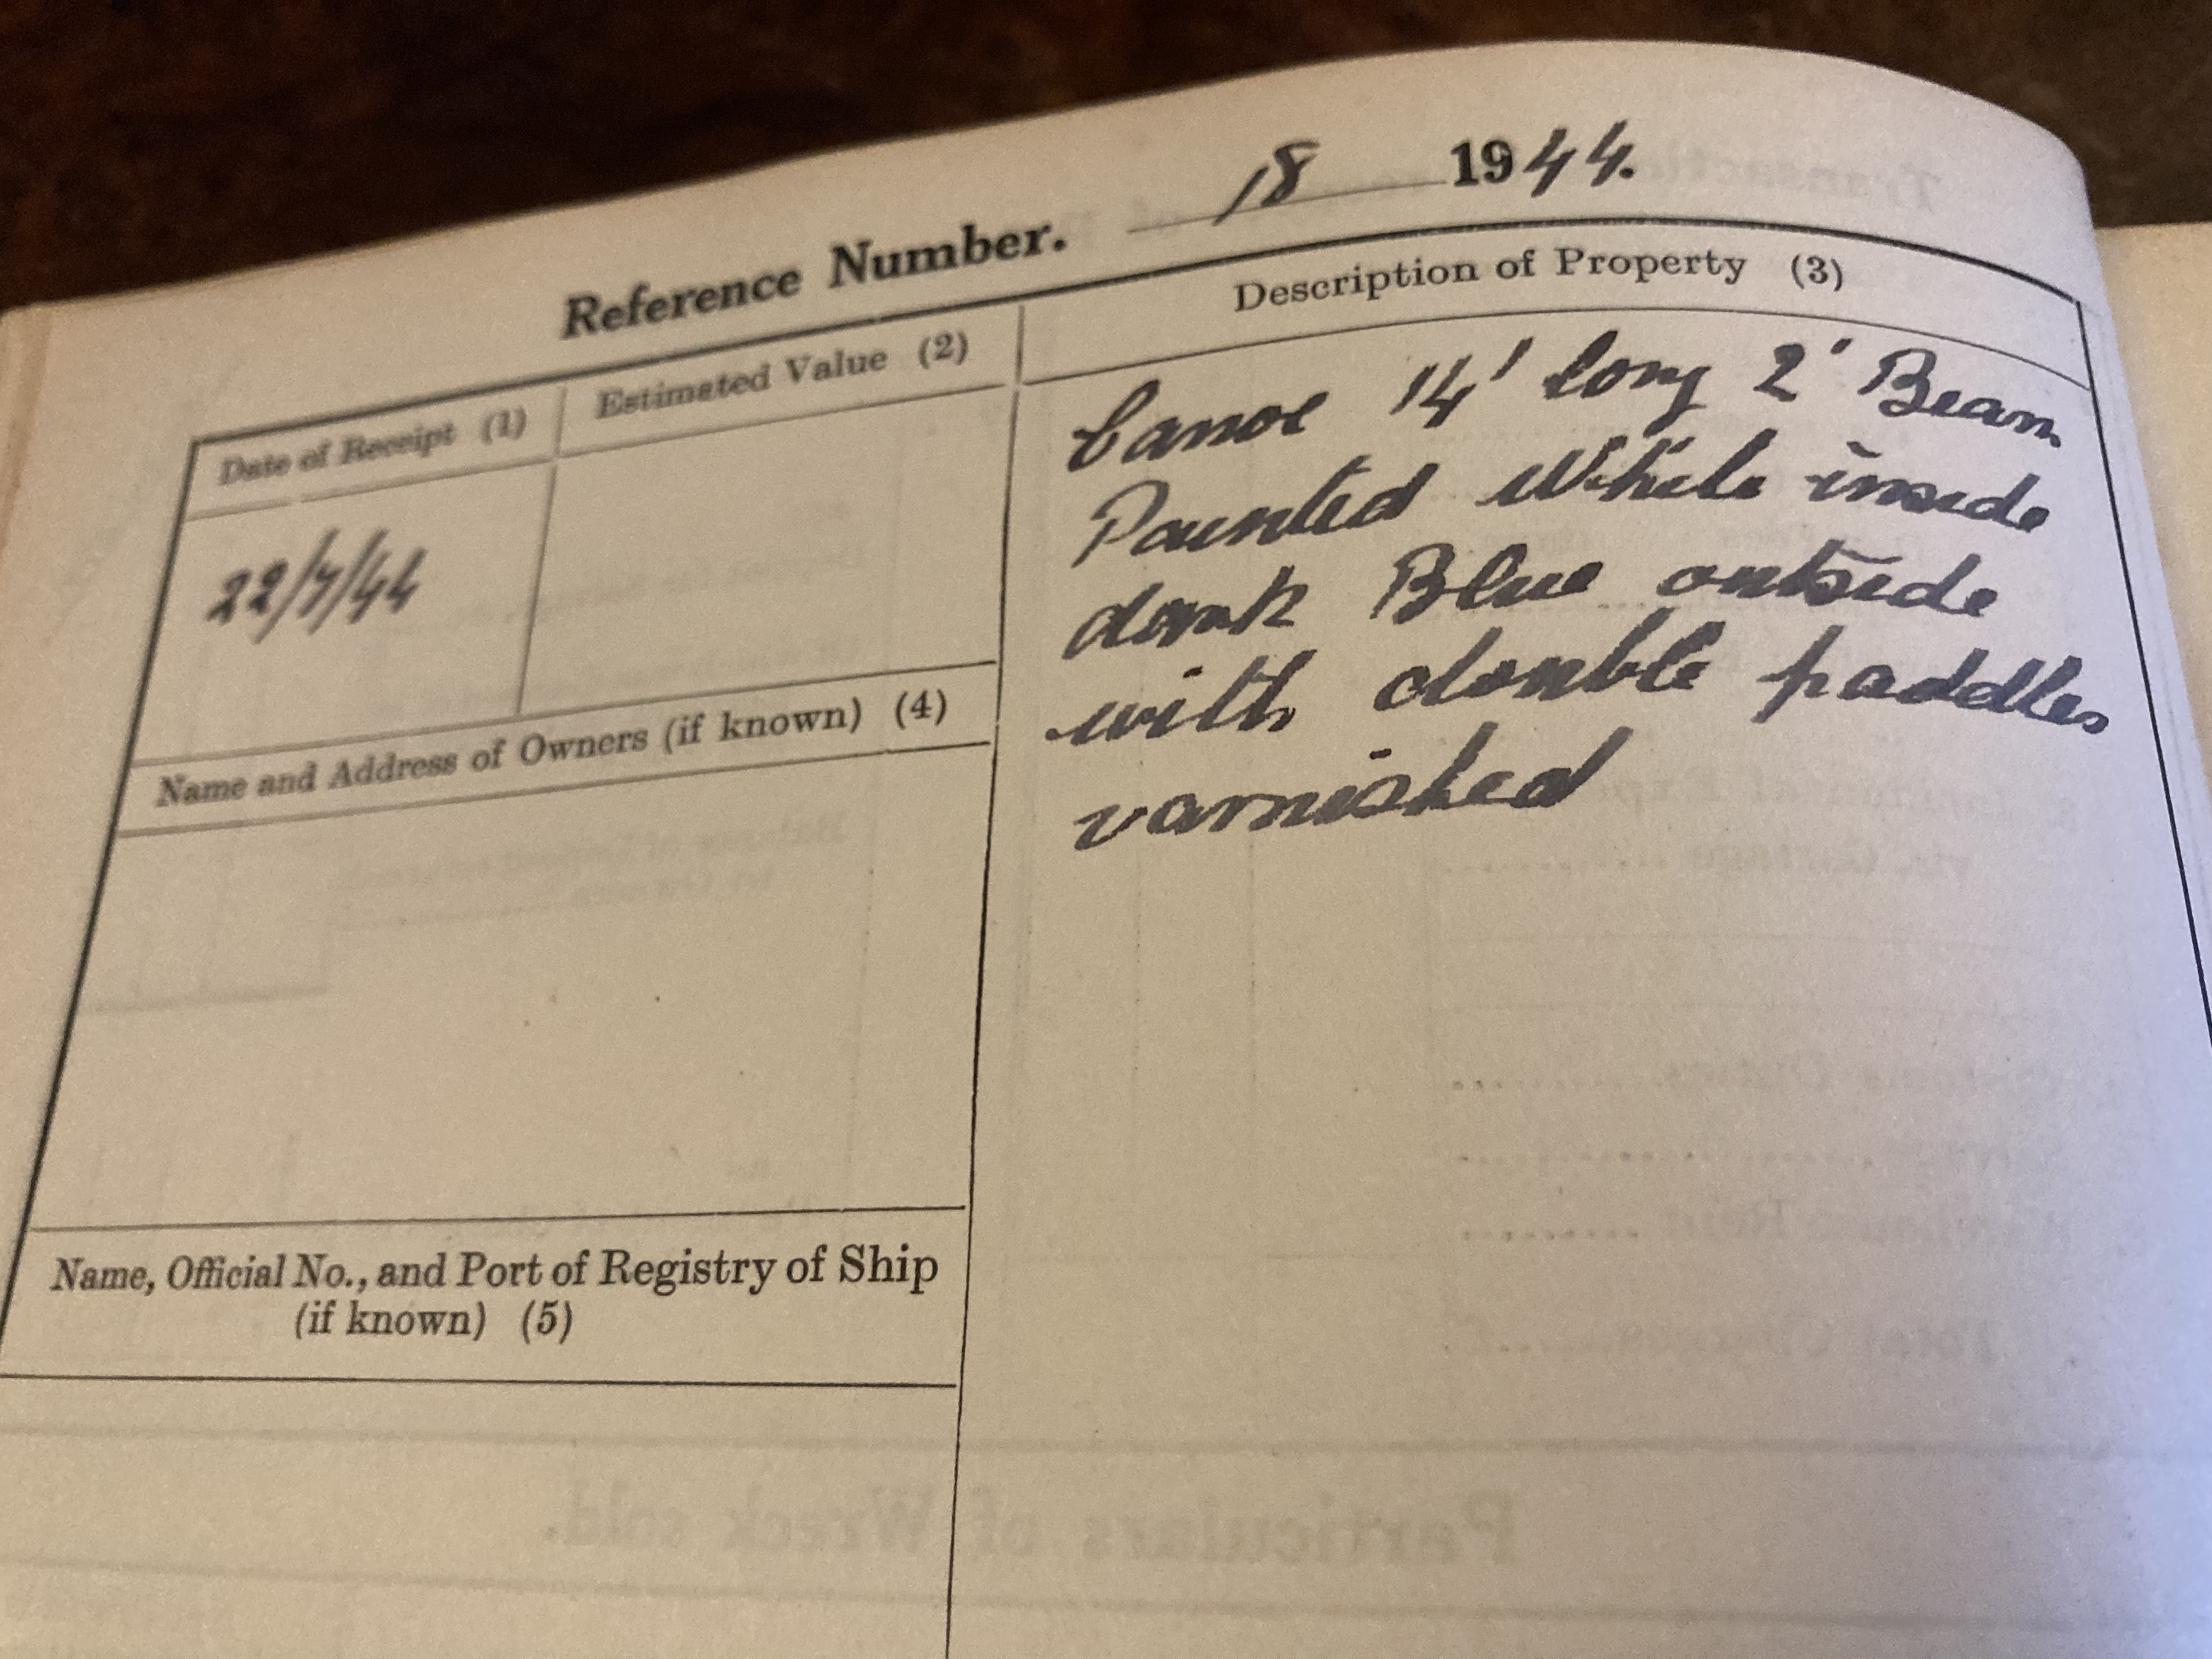 Reference Number. 18 1944.
Date of Receipt (1)
Estimated Value (2)
Description of Property (3)
22/7/44
Canoe 14' long 2' Beam
Painted White inside
dark Blue outside
with double paddles
varnished
Name and Address of Owners (if known) (4)
Name, Official No., and Port of Registry of Ship
(if known) (5)
Particulars of Wreck sold.